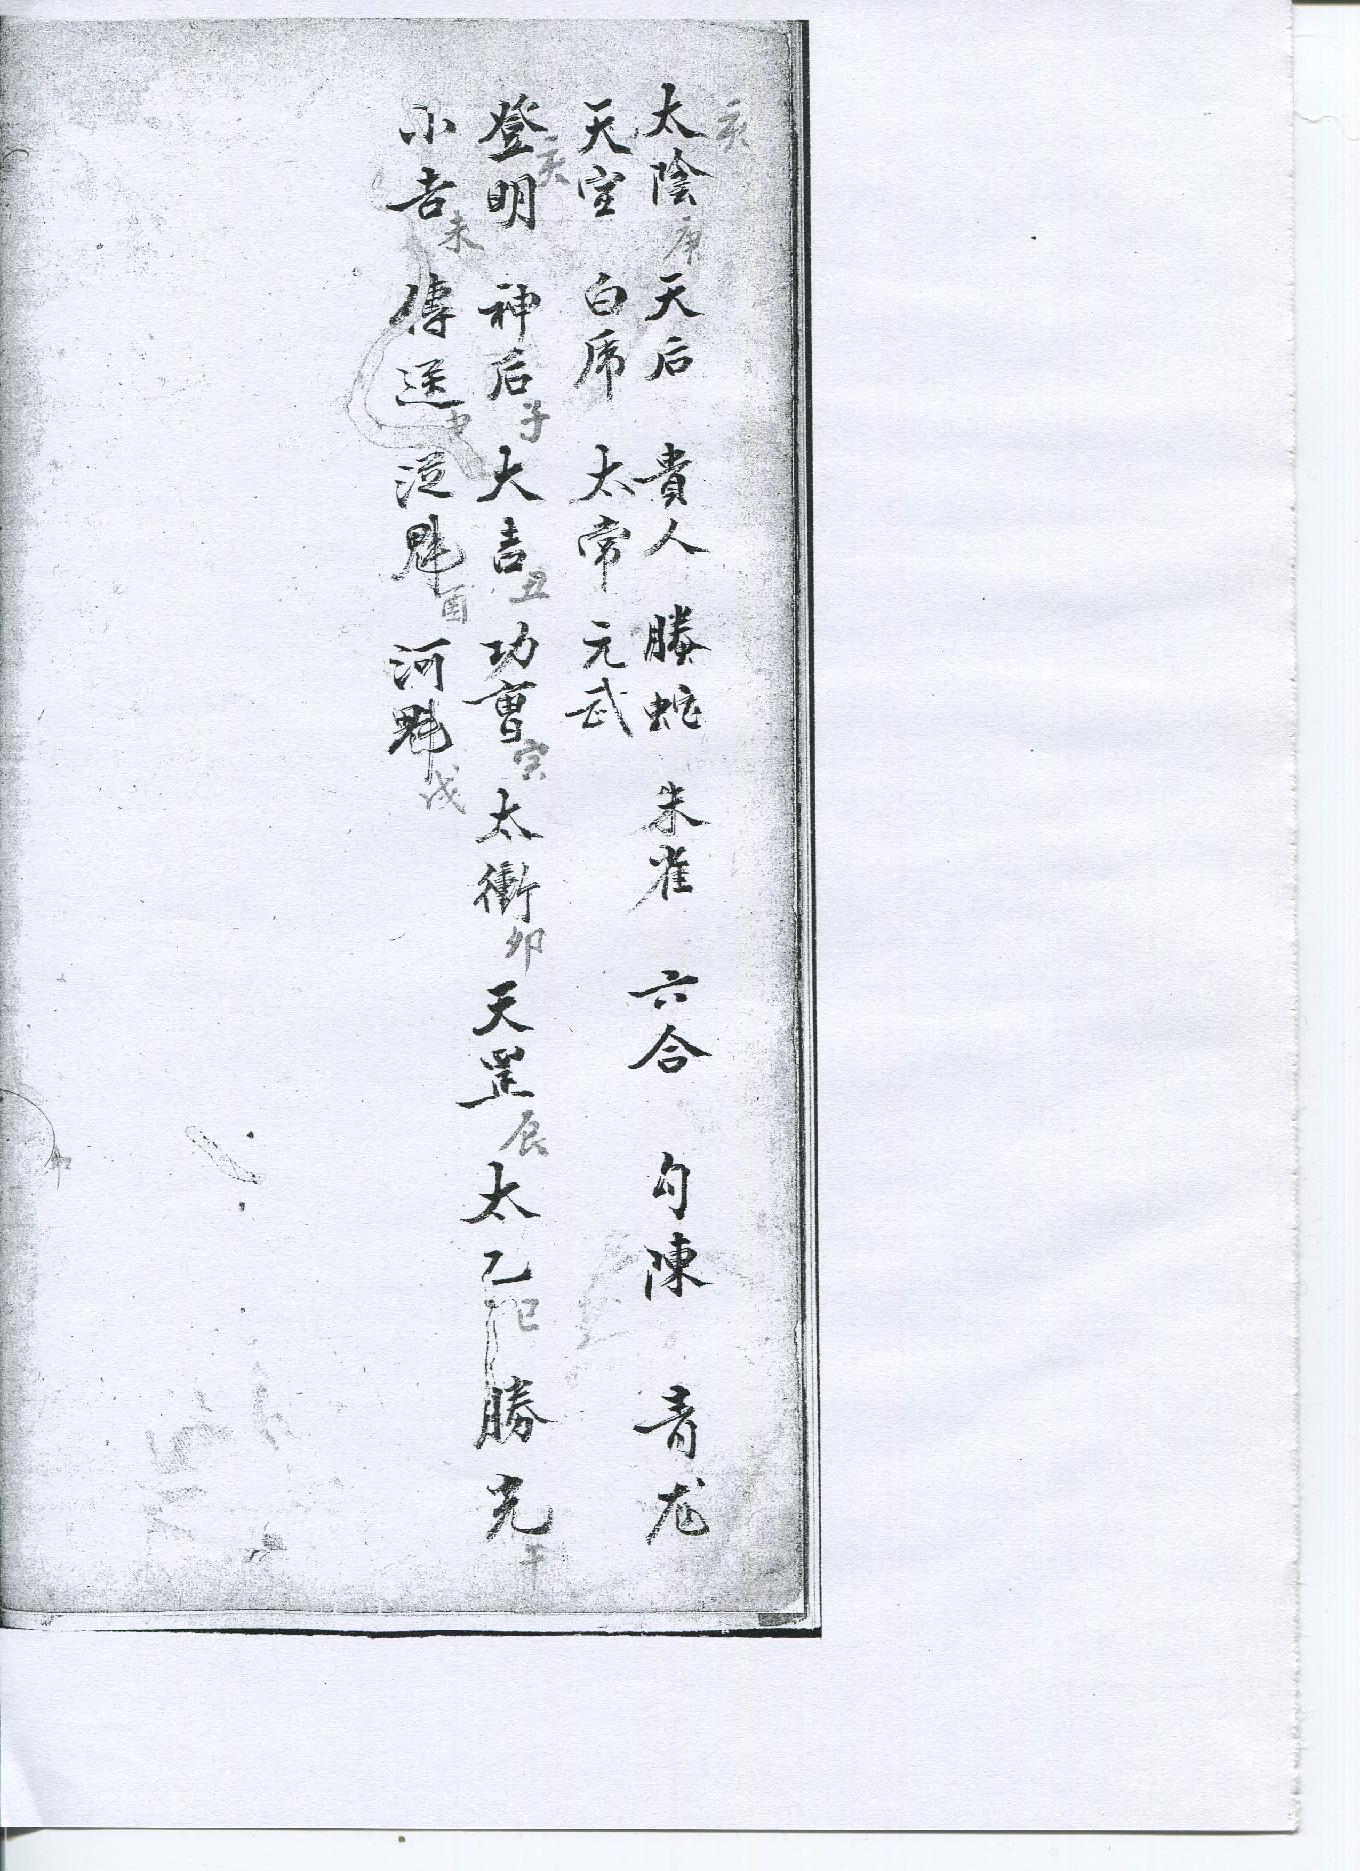 亥
太陰庚天后貴人螣蛇朱雀六合勾陳青龙
天空白虎太常元武
登明亥神后子大吉丑功曹寅太衝卯天罡辰太乙巳勝光午
小吉未傳送申從魁酉河魁戌